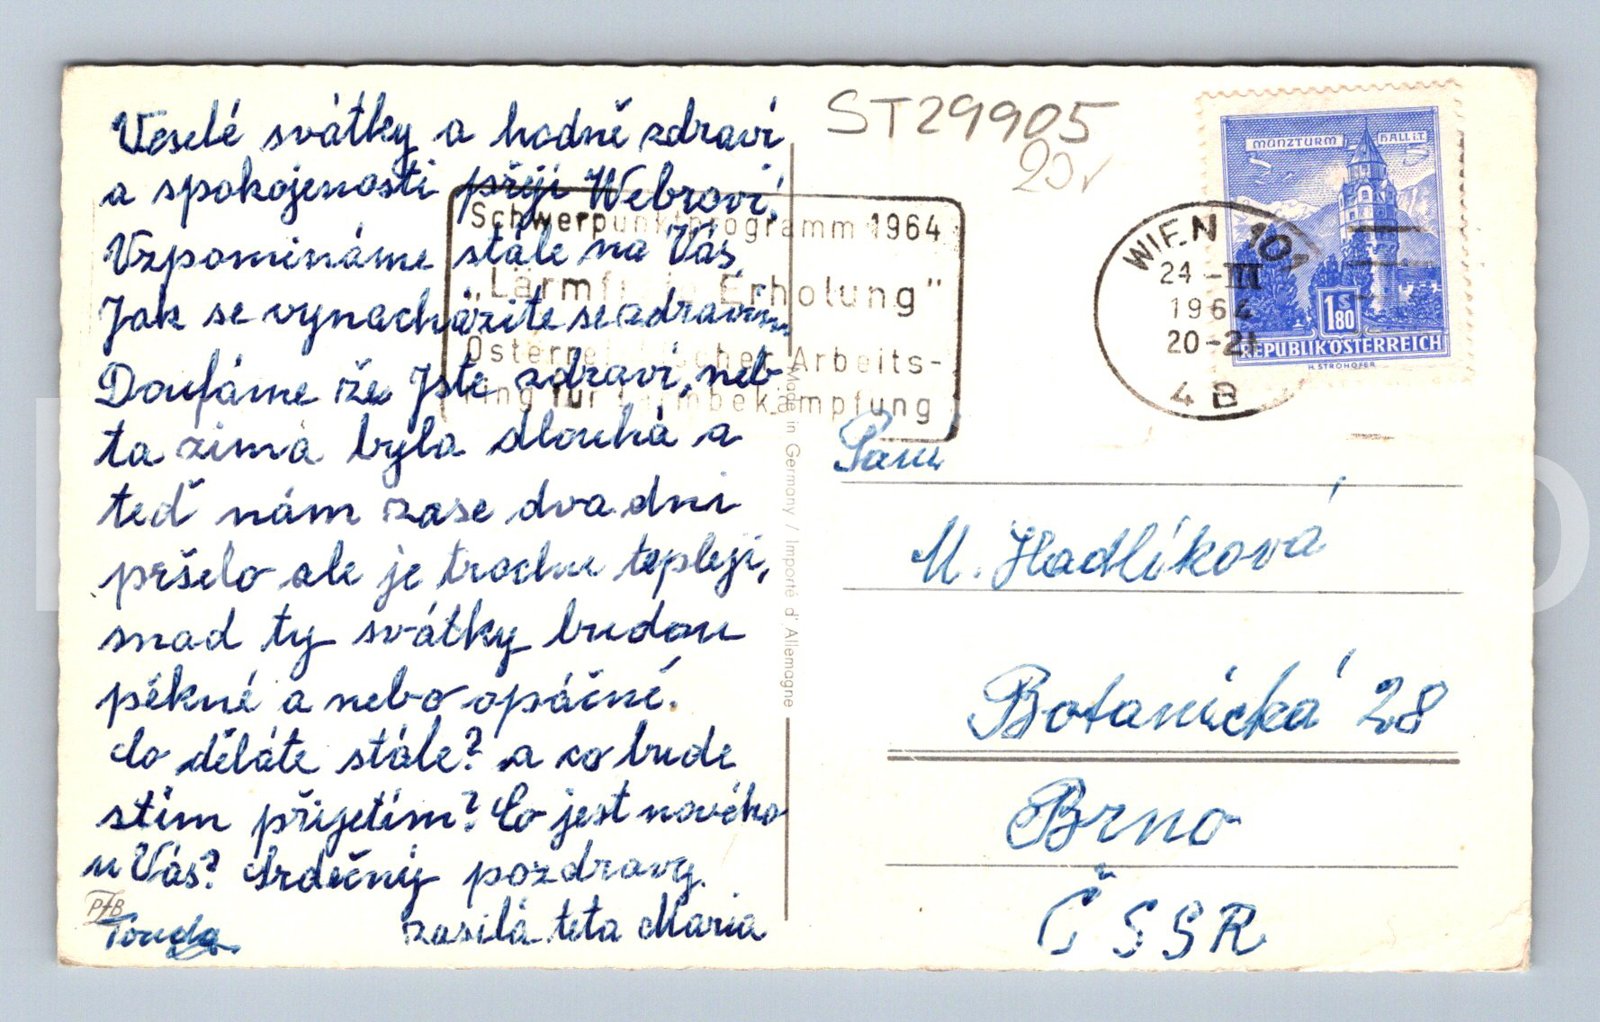 Veselé svátky a hodně zdraví
a spokojenosti přejí Webrovi.
Vzpomínáme stále na Vás
Jak se vynacházíte se zdravím
Doufáme že Jste zdraví, neb-
ta zima byla dlouhá a
teď nám zase dva dni
pršelo ale je trochu tepleji,
snad ty svátky budou
pěkné a nebo opáčné.
Co děláte stále? a co bude
stím přijetím? Co jest nového
u Vás? Srdečný pozdravy.
zasilá teta Maria
PFB
Tonda
ST29905
20,
Schwerpunktprogramm 1964
„Lärmfreie Erholung"
Österreichischer Arbeits-
ring für Lärmbekämpfung
Made in Germany / Importé d'Allemagne
MÜNZTURM HALL i.T.
1 S 80
REPUBLIK ÖSTERREICH
H. STROHOFER
WIEN 101
24-III
1964
20-21
4 B
Paní
M. Hadlíková
Botanická 28
Brno
ČSSR